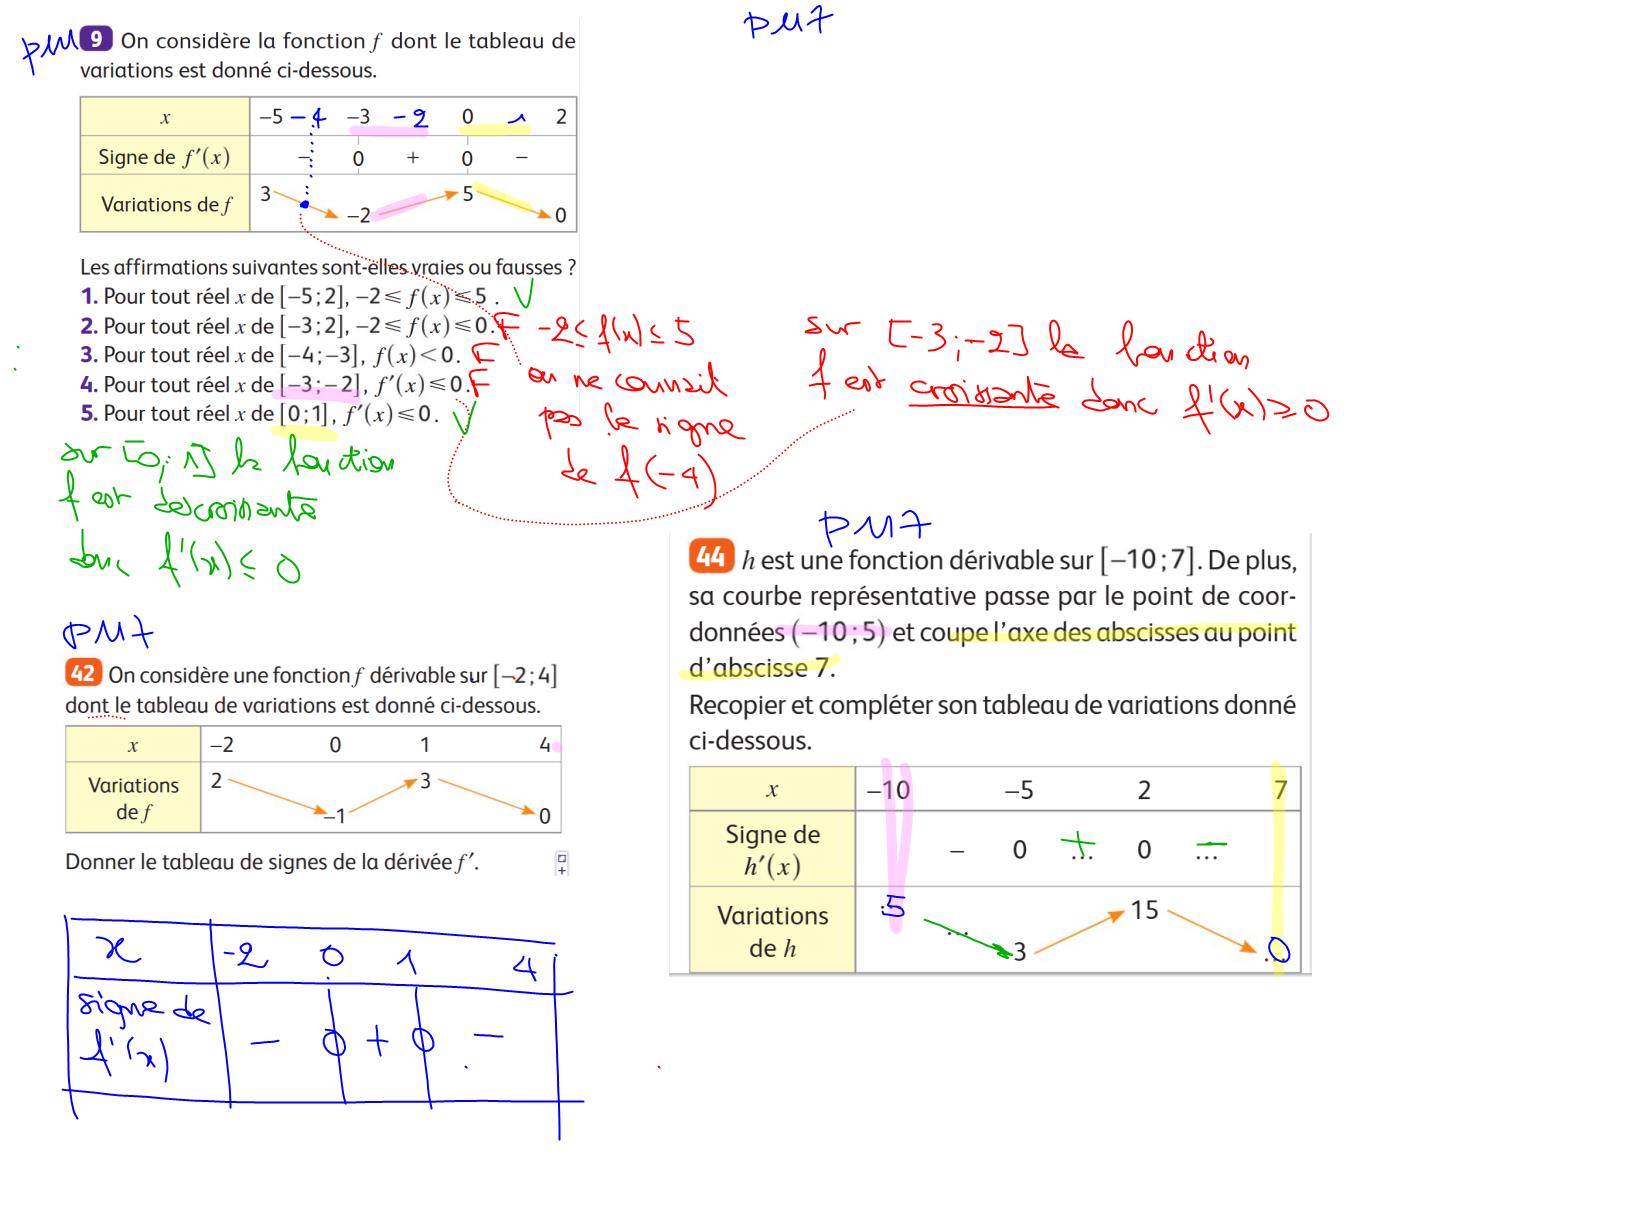 PM7
PM 9 On considère la fonction f dont le tableau de
variations est donné ci-dessous.
x −5 −4 −3 −2 0 1 2
Signe de f′(x) − 0 + 0 −
Variations de f 3 −2 5 0
Les affirmations suivantes sont-elles vraies ou fausses ?
1. Pour tout réel x de [−5 ; 2], −2 ⩽ f(x) ⩽ 5 . V
2. Pour tout réel x de [−3 ; 2], −2 ⩽ f(x) ⩽ 0. F -2 ≤ f(x) ≤ 5
3. Pour tout réel x de [−4 ; −3], f(x) < 0. F
4. Pour tout réel x de [−3 ; −2], f′(x) ⩽ 0. F
5. Pour tout réel x de [0 ; 1], f′(x) ⩽ 0. V
on ne connait
pas le signe
de f(-4)
sur [-3 ; -2] la fonction
f est croissante donc f'(x) ≥ 0
sur [0 ; 1] la fonction
f est descroissante
donc f'(x) ≤ 0
PM7
42 On considère une fonction f dérivable sur [−2 ; 4]
dont le tableau de variations est donné ci-dessous.
x −2 0 1 4
Variations
de f
2 −1 3 0
Donner le tableau de signes de la dérivée f′.
x -2 0 1 4
signe de
f'(x)
− 0 + 0 −
PM7
44 h est une fonction dérivable sur [−10 ; 7]. De plus,
sa courbe représentative passe par le point de coor-
données (−10 ; 5) et coupe l’axe des abscisses au point
d’abscisse 7.
Recopier et compléter son tableau de variations donné
ci-dessous.
x −10 −5 2 7
Signe de
h′(x)
− 0 + ... 0 − ...
Variations
de h
5 ... -3 15 0